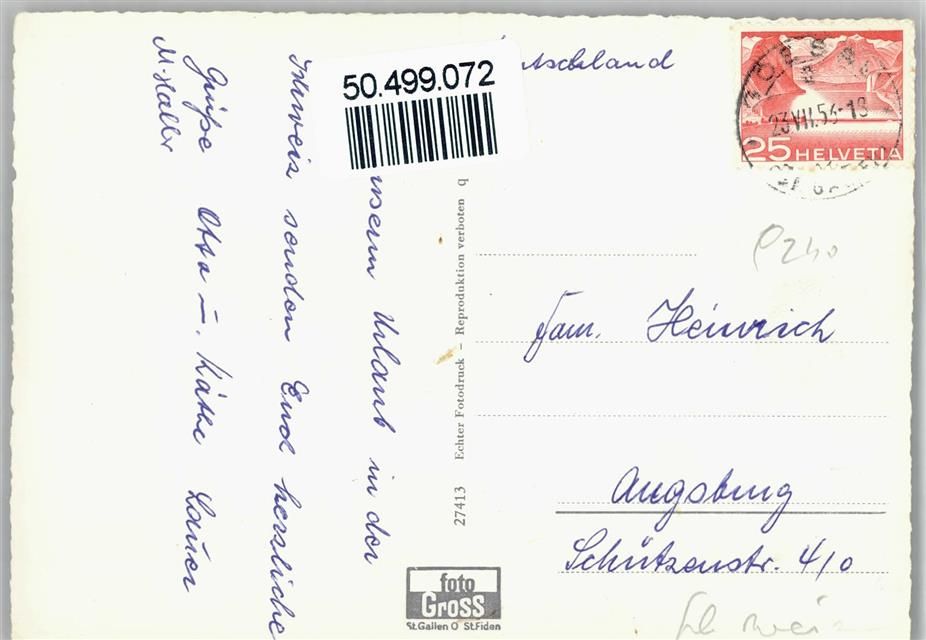 50.499.072
unserm Urlaub in der
Schweiz senden Euch herzliche
Grüße Otto u. Käthe Lauer
M. Haller
27413 Echter Fotodruck – Reproduktion verboten q
foto
Gross
St.Gallen O St.Fiden
Deutschland
25 HELVETIA
23.VII.53-18
Fam. Heinrich
Augsburg
Schützenstr. 4/0